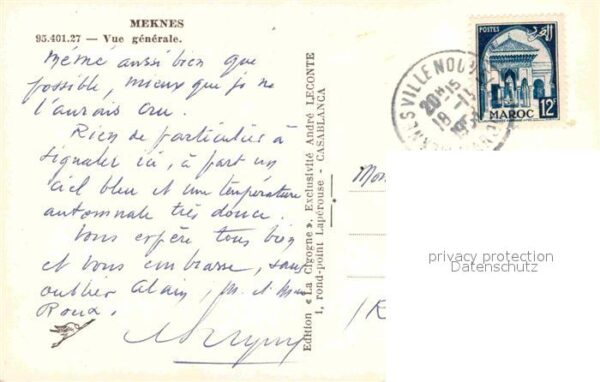 MEKNES
95.401.27 — Vue générale.
Mémé aussi bien que
possible, mieux que je ne
l'aurais cru.
Rien de particulier à
signaler ici, à part un
ciel bleu et une température
automnale très douce.
Vous espère tous bien
et vous embrasse, sans
oublier Alain, M. et Mme
Roux.
Edition « La Cigogne ». Exclusivité André LECONTE
1, rond-point Lapérouse - CASABLANCA
POSTES
MAROC
12F
MEKNES VILLE NOUVELLE
20H15
18-11
privacy protection
Datenschutz